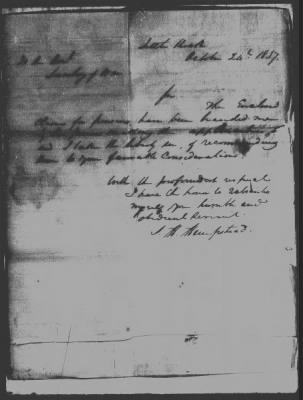 Little Rock
October 24th 1837.
To the Hon.
Secretary of War
Sir
The Enclosed
claims for pensions, have been handed me
and I take the liberty Sir, of recommending
them to your favorable Consideration
With the profoundest respect
I have the honor to
myself your humble and
obedient Servant.
S. H. Hempstead.